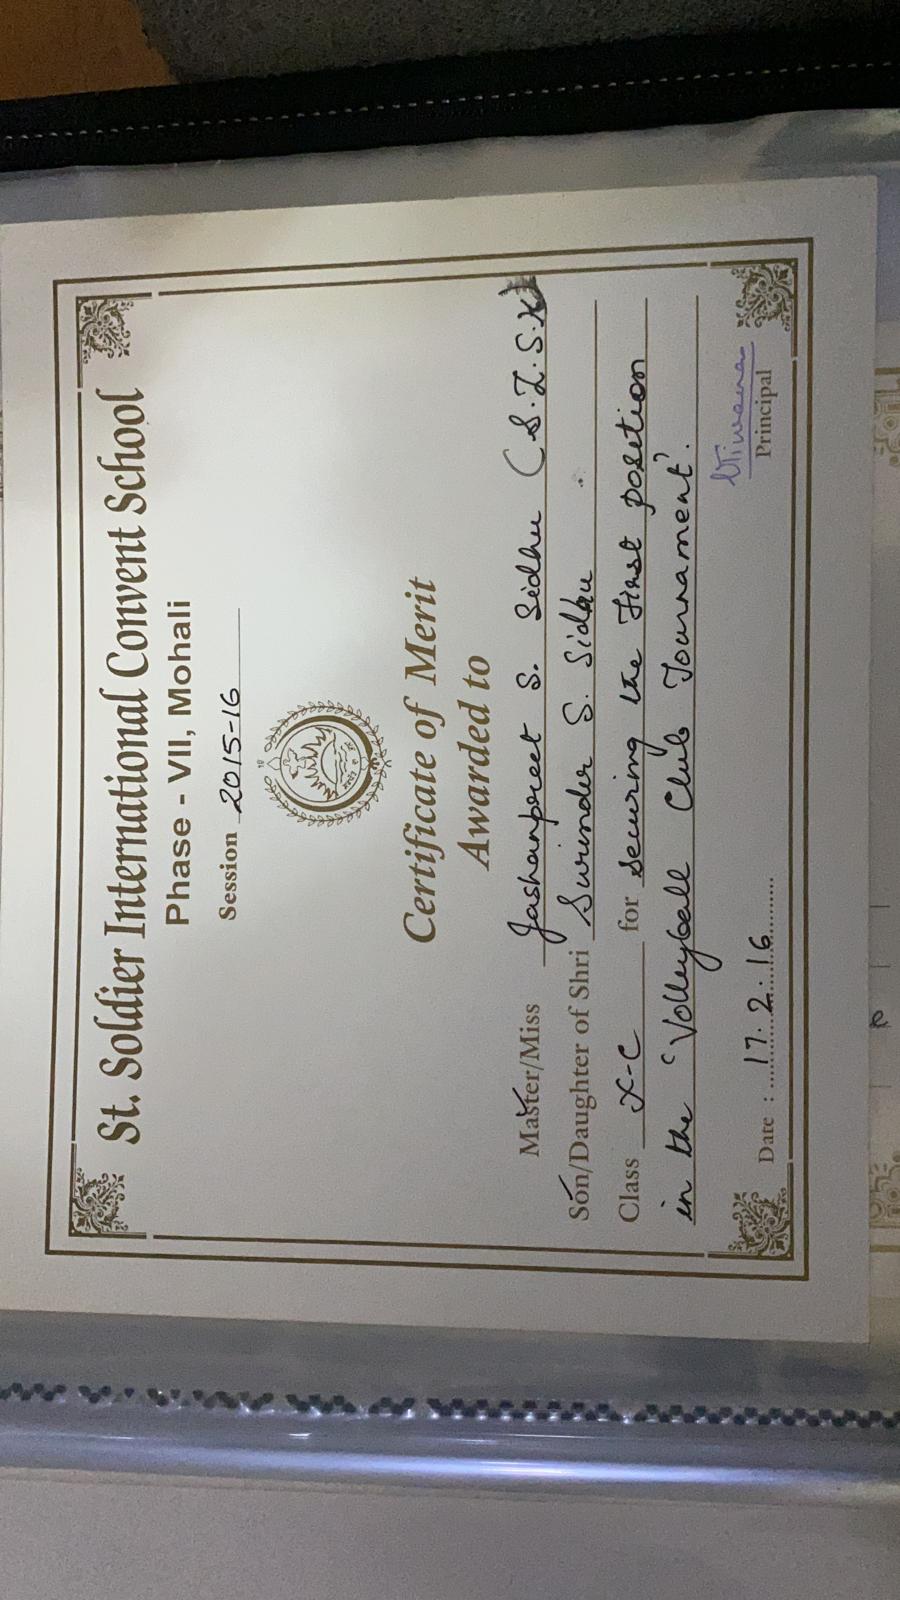 St. Soldier International Convent School
Phase - VII, Mohali
Session 2015-16
Certificate of Merit
Awarded to
Master/Miss Jashanpreet S. Sidhu (S.I.S.X)
Son/Daughter of Shri Surinder S. Sidhu
Class X-C for securing the First position
in the 'Volleyball Club Tournament'.
Date : 17.2.16
Principal